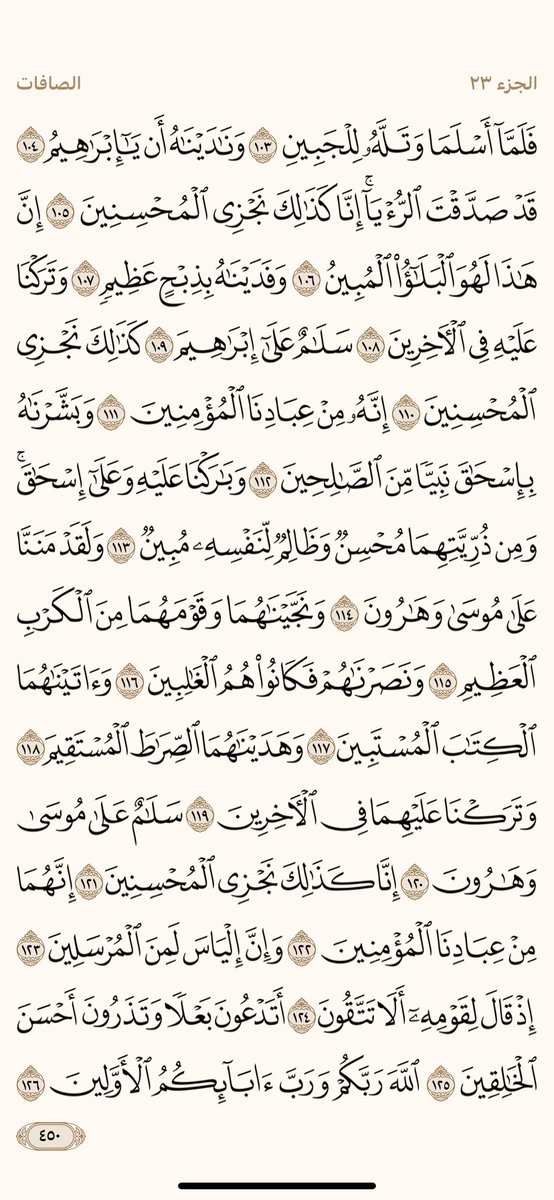 الجزء ٢٣ الصافات
فَلَمَّآ أَسْلَمَا وَتَلَّهُۥ لِلْجَبِينِ ١٠٣ وَنَٰدَيْنَٰهُ أَن يَٰٓإِبْرَٰهِيمُ ١٠٤
قَدْ صَدَّقْتَ ٱلرُّءْيَآۚ إِنَّا كَذَٰلِكَ نَجْزِى ٱلْمُحْسِنِينَ ١٠٥ إِنَّ
هَٰذَا لَهُوَ ٱلْبَلَٰٓؤُا۟ ٱلْمُبِينُ ١٠٦ وَفَدَيْنَٰهُ بِذِبْحٍ عَظِيمٍ ١٠٧ وَتَرَكْنَا
عَلَيْهِ فِى ٱلْـَٔاخِرِينَ ١٠٨ سَلَٰمٌ عَلَىٰٓ إِبْرَٰهِيمَ ١٠٩ كَذَٰلِكَ نَجْزِى
ٱلْمُحْسِنِينَ ١١٠ إِنَّهُۥ مِنْ عِبَادِنَا ٱلْمُؤْمِنِينَ ١١١ وَبَشَّرْنَٰهُ
بِإِسْحَٰقَ نَبِيًّا مِّنَ ٱلصَّٰلِحِينَ ١١٢ وَبَٰرَكْنَا عَلَيْهِ وَعَلَىٰٓ إِسْحَٰقَۚ
وَمِن ذُرِّيَّتِهِمَا مُحْسِنٌ وَظَالِمٌ لِّنَفْسِهِۦ مُبِينٌ ١١٣ وَلَقَدْ مَنَنَّا
عَلَىٰ مُوسَىٰ وَهَٰرُونَ ١١٤ وَنَجَّيْنَٰهُمَا وَقَوْمَهُمَا مِنَ ٱلْكَرْبِ
ٱلْعَظِيمِ ١١٥ وَنَصَرْنَٰهُمْ فَكَانُوا۟ هُمُ ٱلْغَٰلِبِينَ ١١٦ وَءَاتَيْنَٰهُمَا
ٱلْكِتَٰبَ ٱلْمُسْتَبِينَ ١١٧ وَهَدَيْنَٰهُمَا ٱلصِّرَٰطَ ٱلْمُسْتَقِيمَ ١١٨
وَتَرَكْنَا عَلَيْهِمَا فِى ٱلْـَٔاخِرِينَ ١١٩ سَلَٰمٌ عَلَىٰ مُوسَىٰ
وَهَٰرُونَ ١٢٠ إِنَّا كَذَٰلِكَ نَجْزِى ٱلْمُحْسِنِينَ ١٢١ إِنَّهُمَا
مِنْ عِبَادِنَا ٱلْمُؤْمِنِينَ ١٢٢ وَإِنَّ إِلْيَاسَ لَمِنَ ٱلْمُرْسَلِينَ ١٢٣
إِذْ قَالَ لِقَوْمِهِۦٓ أَلَا تَتَّقُونَ ١٢٤ أَتَدْعُونَ بَعْلًا وَتَذَرُونَ أَحْسَنَ
ٱلْخَٰلِقِينَ ١٢٥ ٱللَّهَ رَبَّكُمْ وَرَبَّ ءَابَآئِكُمُ ٱلْأَوَّلِينَ ١٢٦
٤٥٠